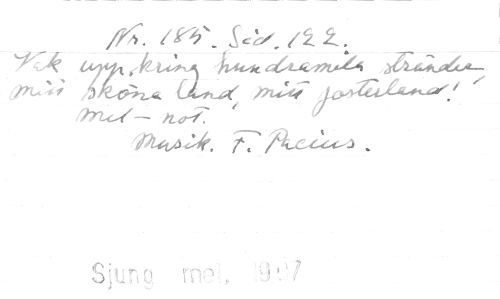 Nr. 185. Sid. 122.
Vak upp, kring hundramila stränder,
mitt sköna land, mitt fosterland!
mel - not.
Musik. F. Pacius.
Sjung mel, 1907